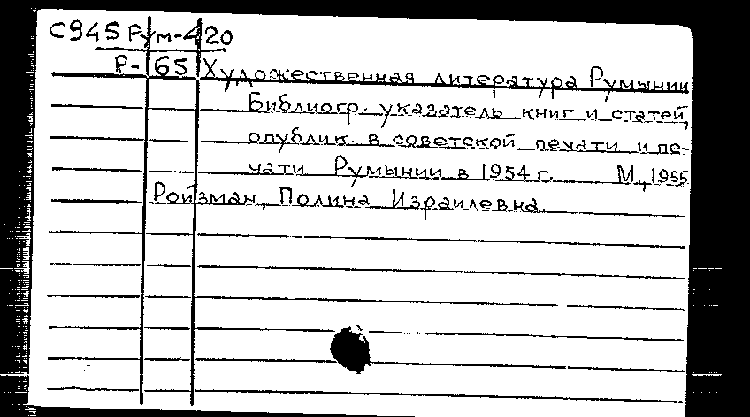 С945 Рум-420
Р-65 Художественная литература Румынии
Библиогр. указатель книг и статей,
опублик. в советской печати и пе-
чати Румынии в 1954 г. М., 1955
Ройзман, Полина Израилевна.